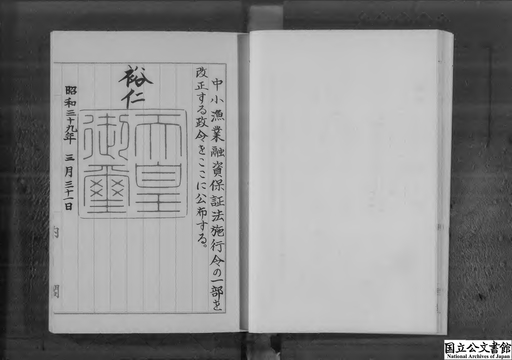 中小漁業融資保証法施行令の一部を
改正する政令をここに公布する。
裕仁
天皇
御璽
昭和三十九年 三月三十一日
内
閣
国立公文書館
National Archives of Japan